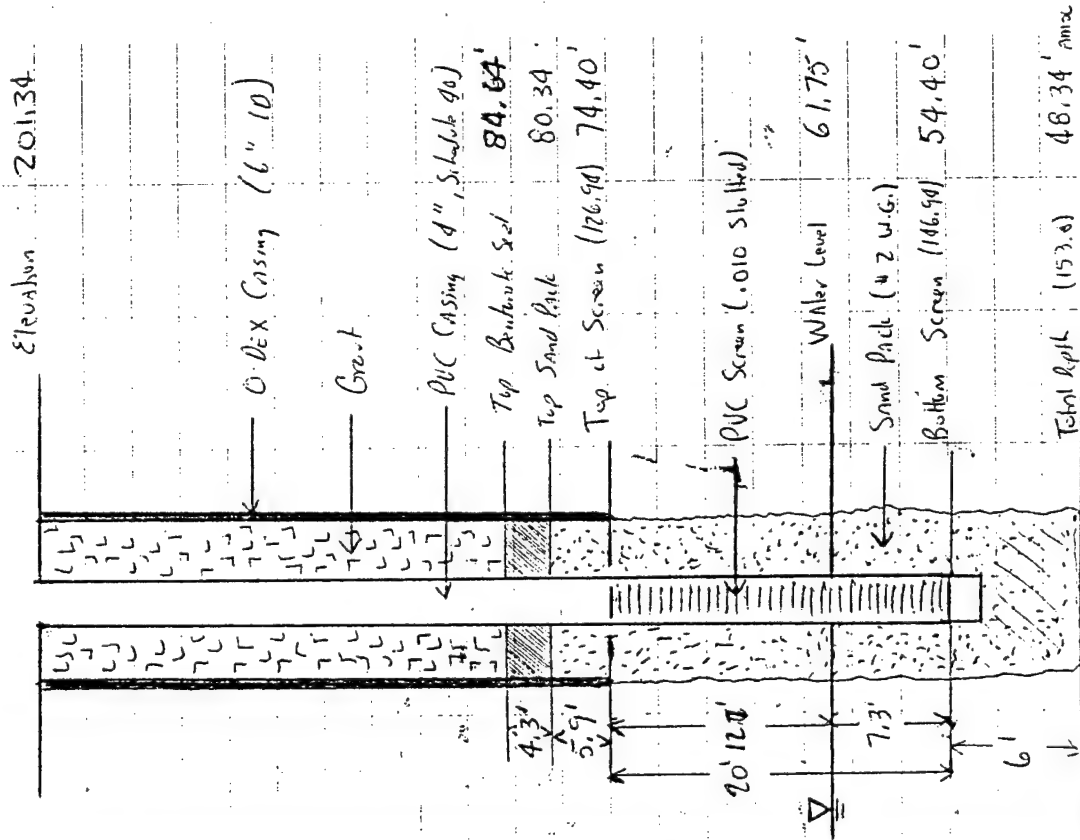 Elevation 201.34
O-DEX Casing (6" ID)
Grout
PVC Casing (4", Schedule 40)
Top Bentonite Seal 84.64'
Top Sand Pack 80.34
Top of Screen (126.94) 74.40'
PVC Screen (.010 Slotted)
Water Level 61.75'
Sand Pack (#2 W.G.)
Bottom Screen (146.94) 54.40'
Total Depth (153.0) 48.34'
4.3'
5.9'
20'
7.3'
6'